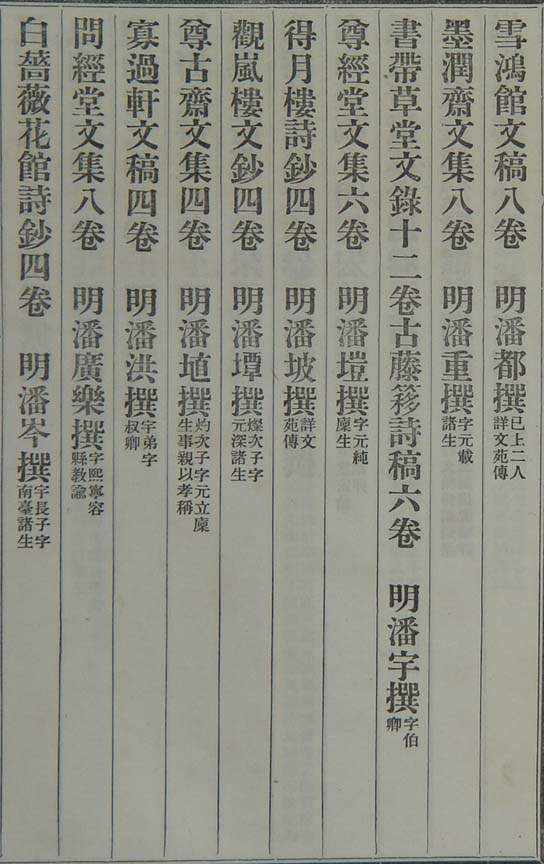 雪鴻館文稿八卷　明潘都撰已上二人詳文苑傳
墨潤齋文集八卷　明潘重撰字元載諸生
書帶草堂文錄十二卷古藤簃詩稿六卷　明潘宇撰字伯卿
尊經堂文集六卷　明潘塏撰字元純廩生
得月樓詩鈔四卷　明潘坡撰詳文苑傳
觀嵐樓文鈔四卷　明潘墰撰燦次子字元深諸生
尊古齋文集四卷　明潘埴撰灼次子字元立廩生事親以孝稱
寡過軒文稿四卷　明潘洪撰宇弟字叔卿
問經堂文集八卷　明潘廣樂撰字熙寧容縣教諭
白薔薇花館詩鈔四卷　明潘岑撰宇長子字南臺諸生